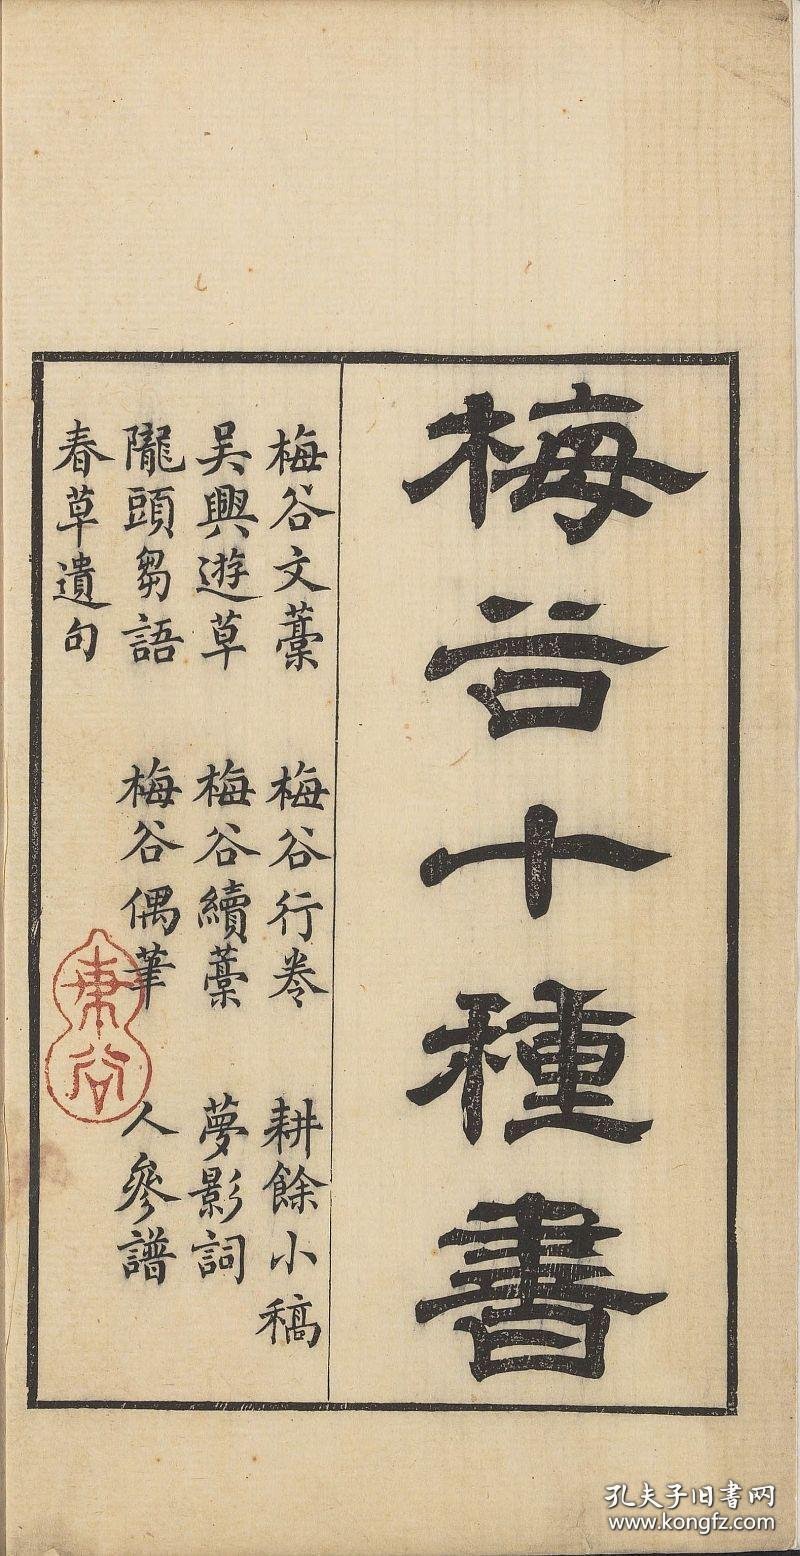 梅谷十種書
梅谷文藁　梅谷行卷　耕餘小稿
吴興遊草　梅谷續藁　夢影詞
隴頭芻語　梅谷偶筆　人參譜
春草遺句
孔夫子旧书网
www.kongfz.com